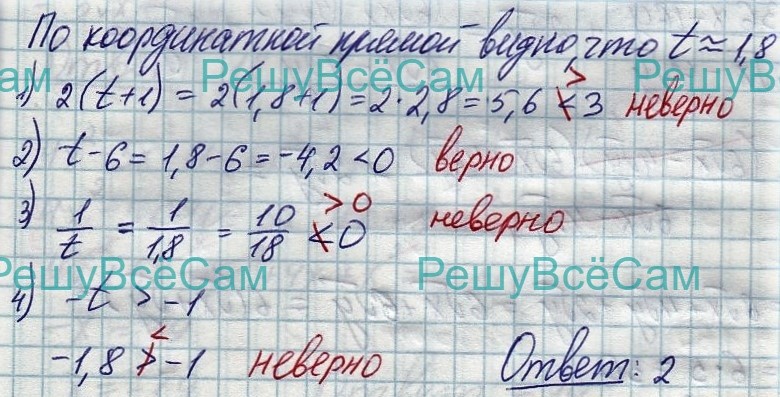 По координатной прямой видно, что t ≈ 1,8
1) 2(t+1) = 2(1,8+1) = 2·2,8 = 5,6 > < 3 неверно
2) t-6 = 1,8-6 = -4,2 < 0 верно
3) 1/t = 1/1,8 = 10/18 < 0 > 0 неверно
4) -t > -1
-1,8 > < -1 неверно
Ответ: 2
ам РешуВсёСам РешуВ
РешуВсёСам РешуВсёСам